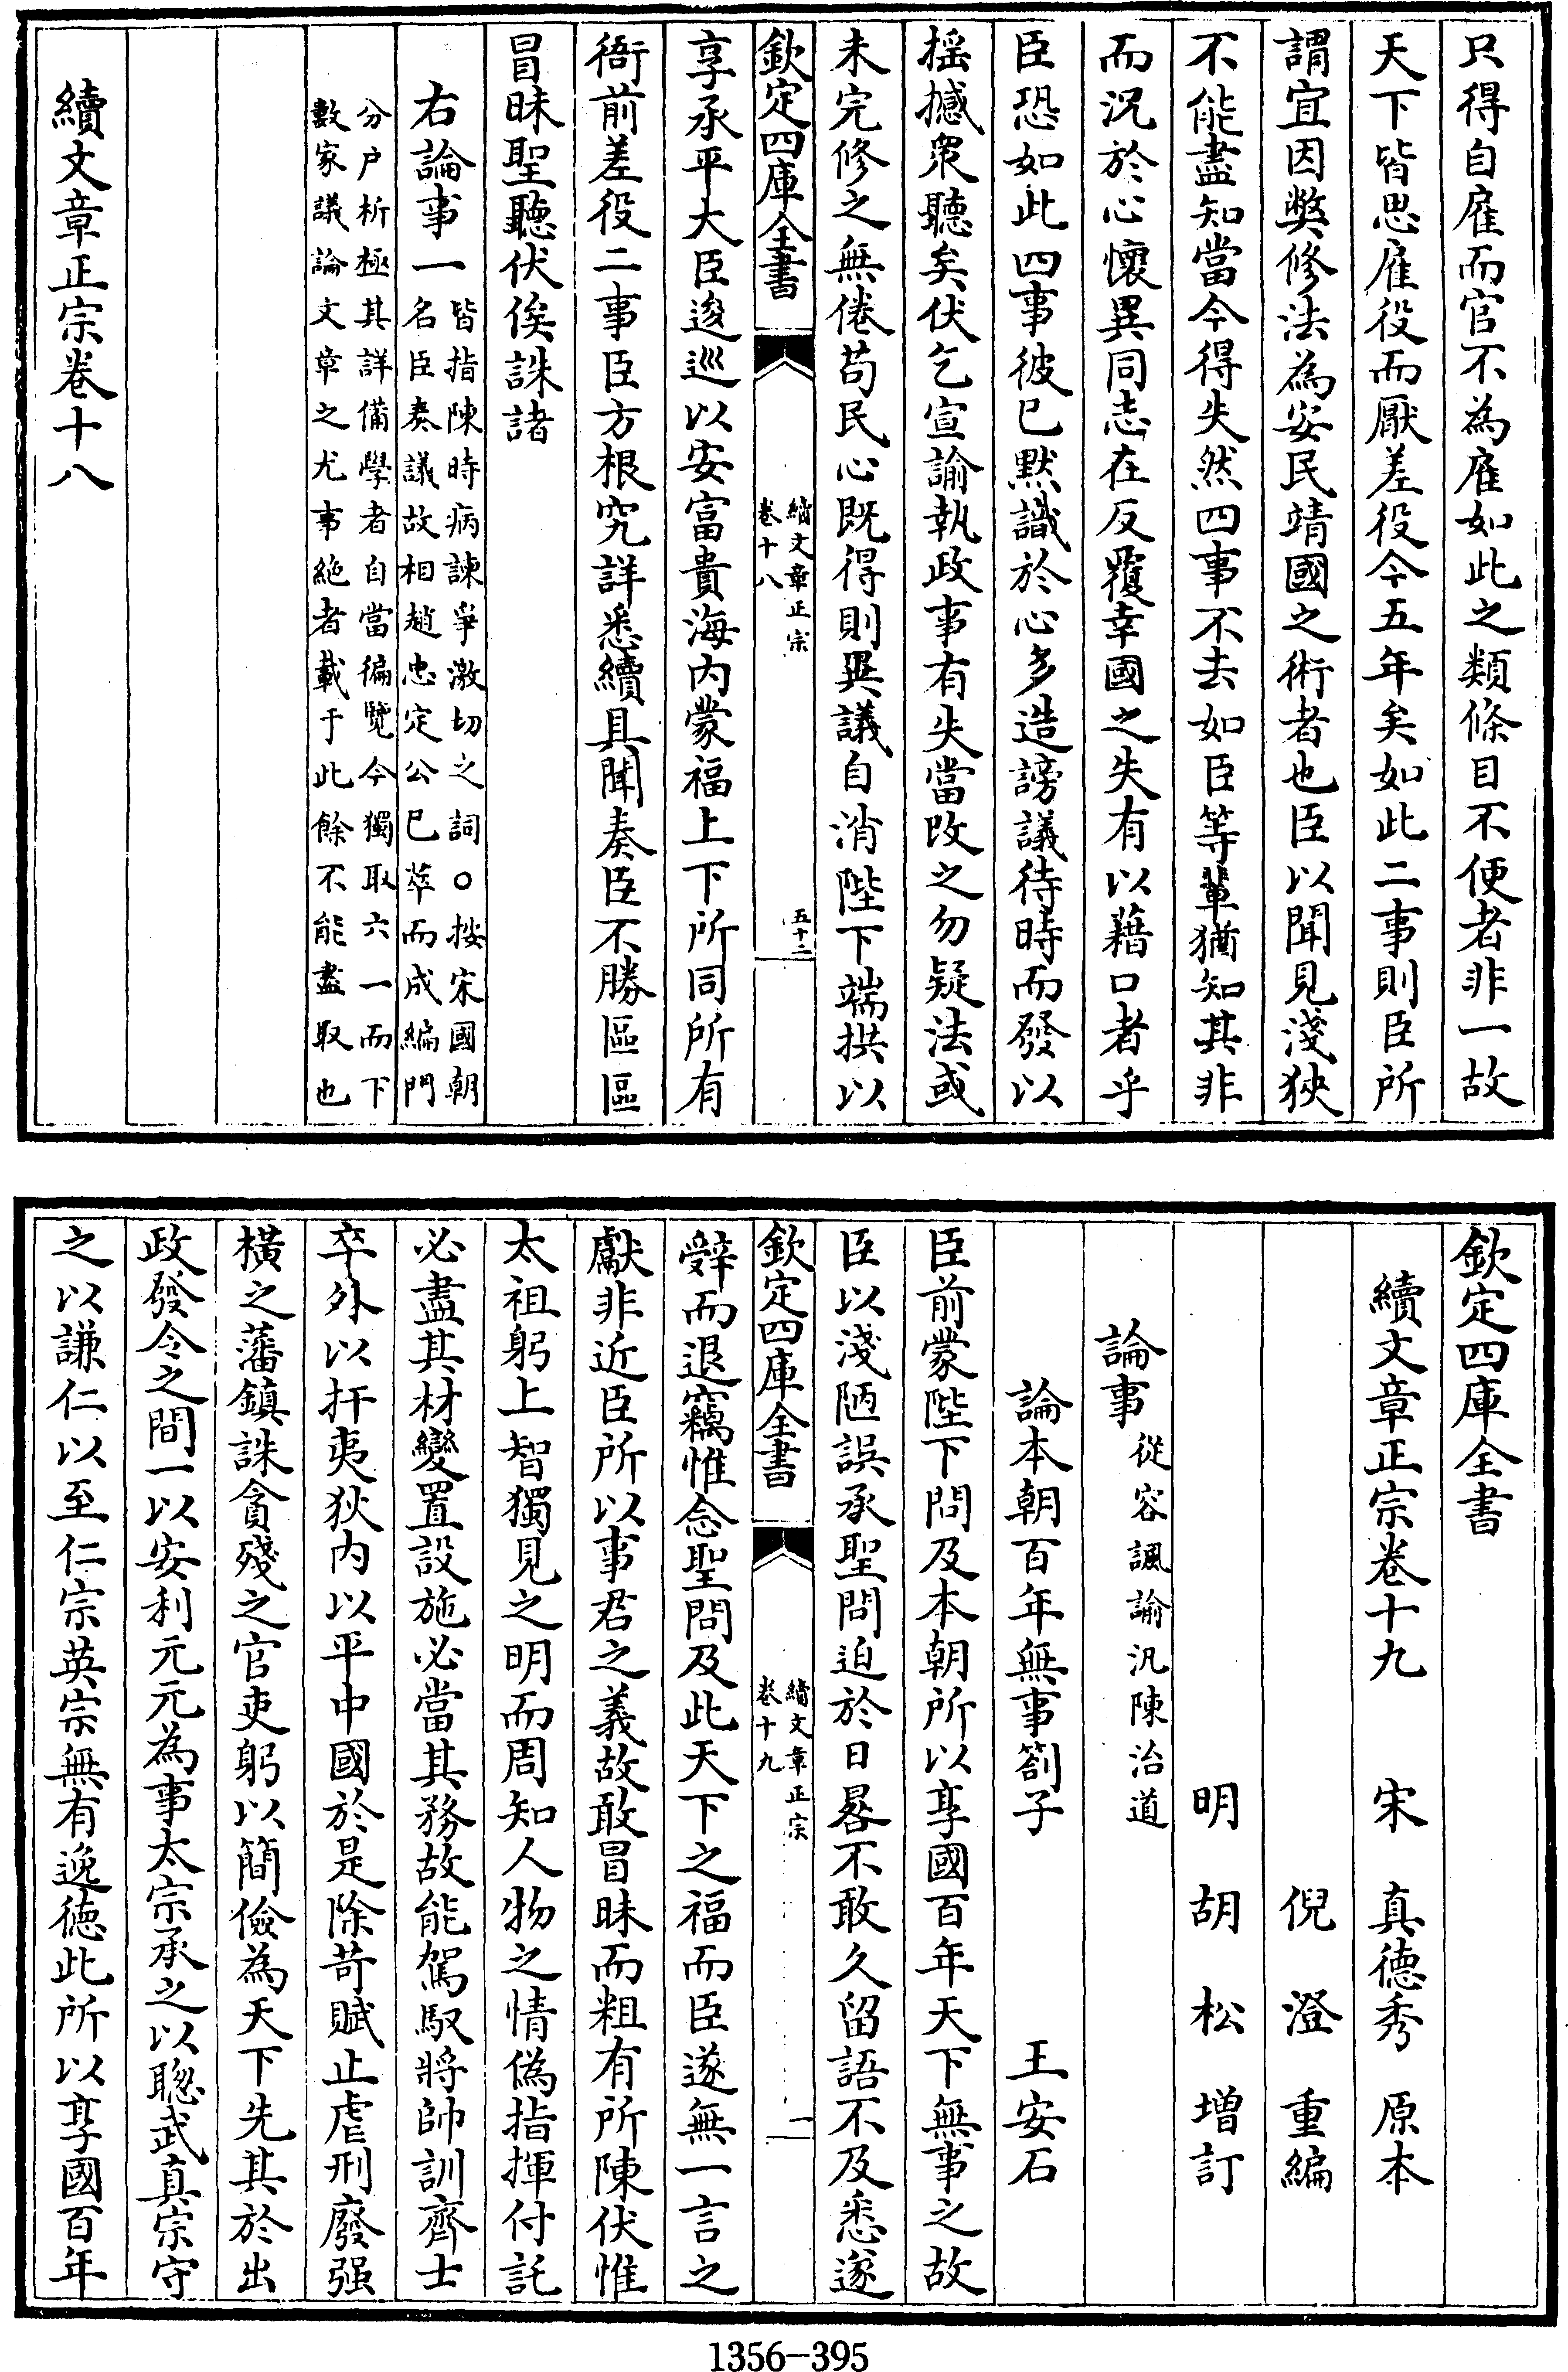 只得自雇而官不為雇如此之類條目不便者非一故
天下皆思雇役而厭差役今五年矣如此二事則臣所
謂宜因弊修法為安民靖國之術者也臣以聞見淺狹
不能盡知當今得失然四事不去如臣等輩猶知其非
而況於心懷異同志在反覆幸國之失有以藉口者乎
臣恐如此四事彼已默識於心多造謗議待時而發以
揺撼衆聽矣伏乞宣諭執政事有失當改之勿疑法或
未完修之無倦苟民心既得則異議自消陛下端拱以
欽定四庫全書
續文章正宗
卷十八
五十二
享承平大臣逡巡以安富貴海内蒙福上下所同所有
衙前差役二事臣方根究詳悉續具聞奏臣不勝區區
冒昧聖聽伏俟誅諸
右論事一
皆指陳時病諫爭激切之詞○按宋國朝
名臣奏議故相趙忠定公已萃而成編門
分户析極其詳備學者自當徧覽今獨取六一而下
數家議論文章之尤事絶者載于此餘不能盡取也
續文章正宗卷十八
欽定四庫全書
續文章正宗卷十九 宋 真德秀 原本
倪 澄 重編
明 胡 松 增訂
論事
從容諷諭汎陳治道
論本朝百年無事劄子 王安石
臣前蒙陛下問及本朝所以享國百年天下無事之故
臣以淺陋誤承聖問迫於日晷不敢久留語不及悉遂
欽定四庫全書
續文章正宗
卷十九
一
辭而退竊惟念聖問及此天下之福而臣遂無一言之
獻非近臣所以事君之義故敢冒昧而粗有所陳伏惟
太祖躬上智獨見之明而周知人物之情偽指揮付託
必盡其材變置設施必當其務故能駕馭將帥訓齊士
卒外以扞夷狄内以平中國於是除苛賦止虐刑廢强
橫之藩鎮誅貪殘之官吏躬以簡儉為天下先其於出
政發令之間一以安利元元為事太宗承之以聰武真宗守
之以謙仁以至仁宗英宗無有逸德此所以享國百年
1356-395